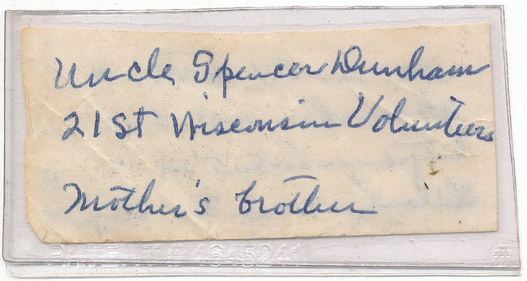 Uncle Spencer Dunham
21st Wisconsin Volunteers
Mother's brother